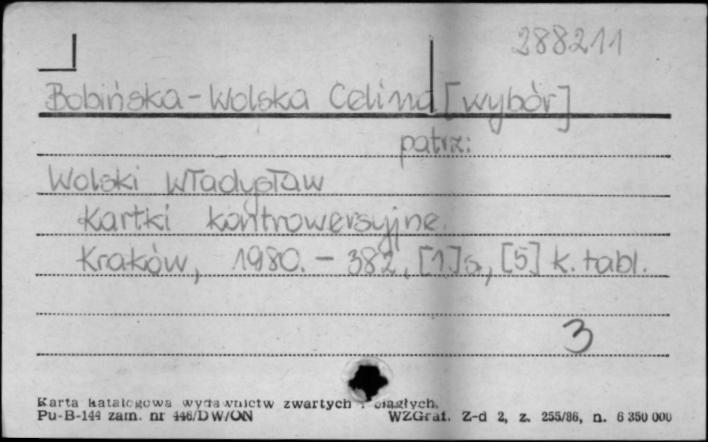 288211
Bobińska-Wolska Celina [wybór]
patrz:
Wolski Władysław
Kartki kontrowersyjne.
Kraków, 1980. – 382, [1] s., [5] k. tabl.
3
Karta katalogowa wydawnictw zwartych i ciągłych.
Pu-B-144 zam. nr 446/DW/ON WZGraf. Z-d 2, z. 255/86, n. 6 350 000